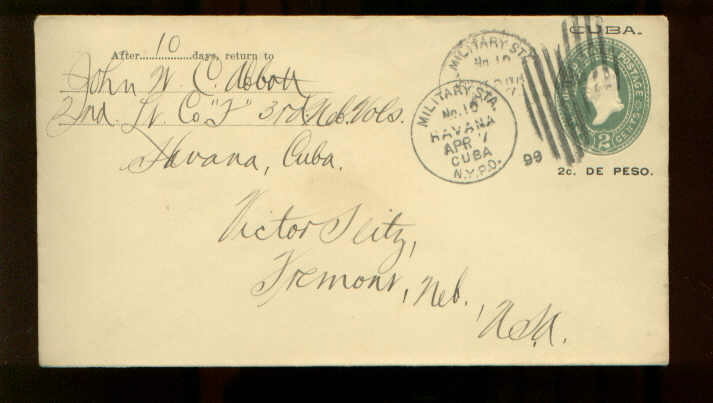 After 10 days, return to
John W. C. Abbott
2nd. Lt. Co. "I" 3rd Neb. Vols.
Havana, Cuba.
Victor Seitz,
Fremont, Neb.,
USA.
MILITARY STA.
No. 10
MILITARY STA.
No. 10
HAVANA
APR 7
CUBA
N.Y.P.D.
99
CUBA.
POSTAGE
2 CENTS
2c. DE PESO.